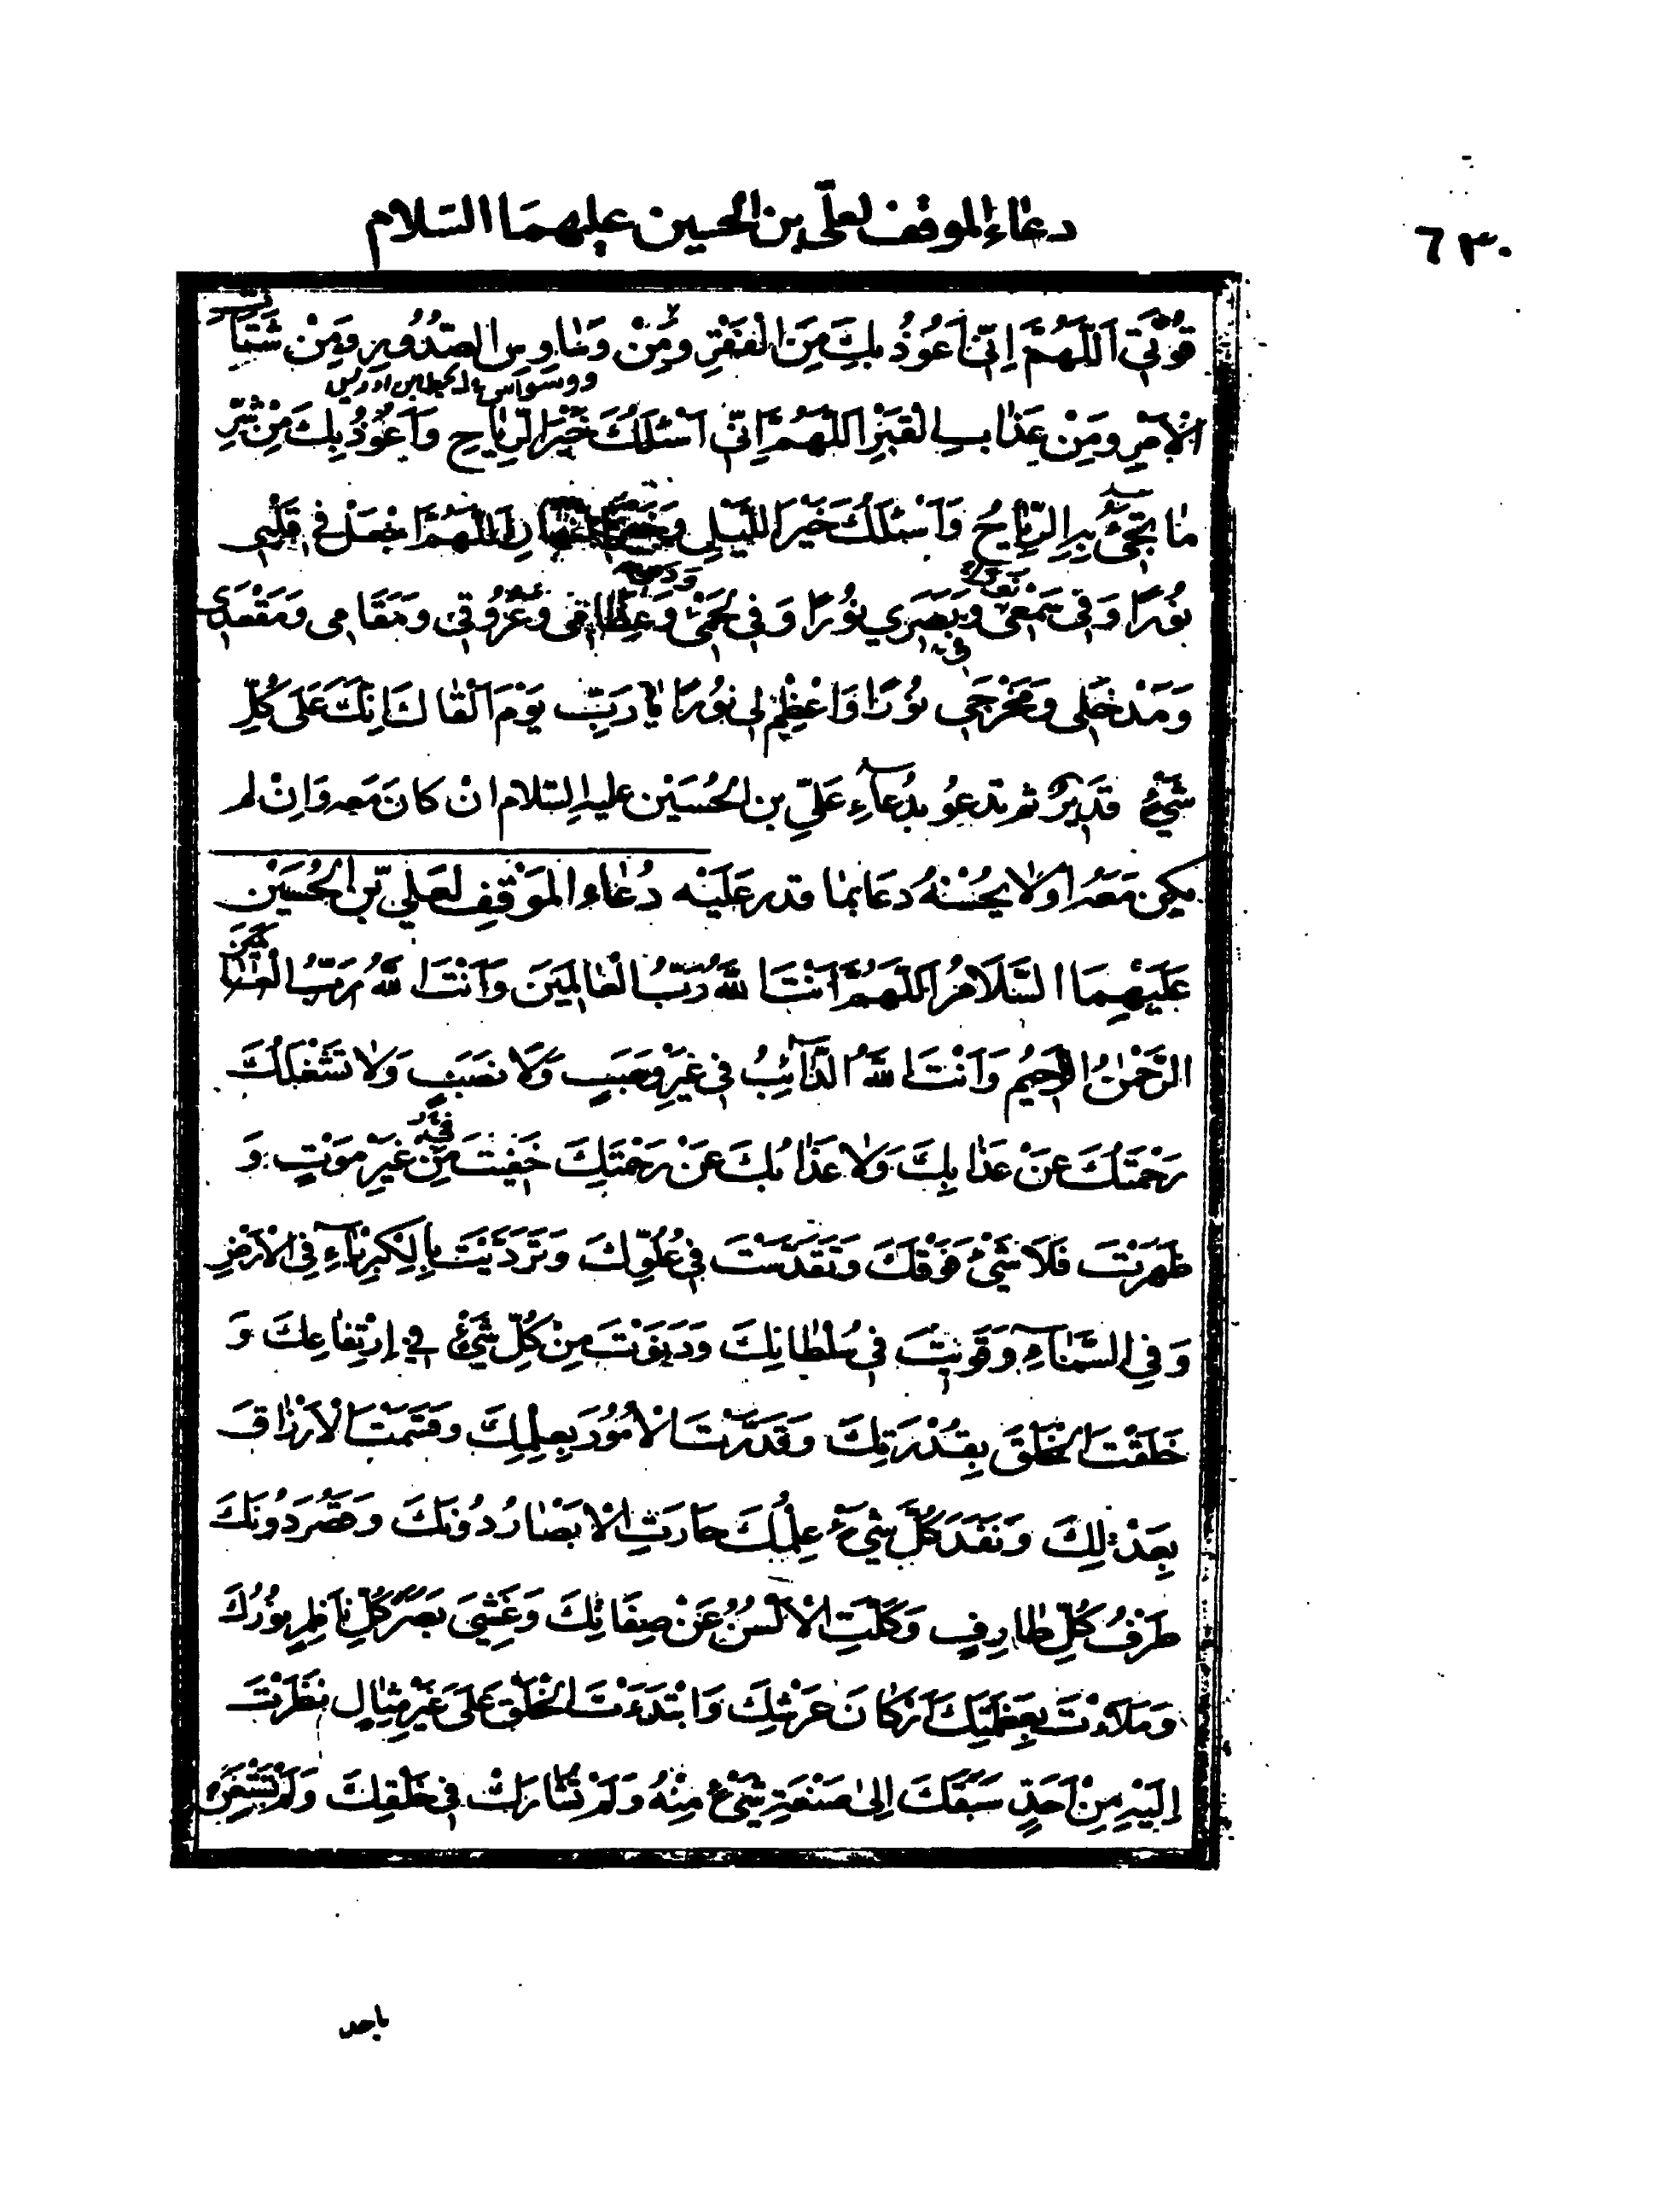 دعاء الموقف لعلّي بن الحسين عليهما السّلام
٦٣٠
قُوَّتِي اَللّٰهُمَّ اِنّي اَعُوذُ بِكَ مِنَ الْفَقْرِ وَمِنْ وَسٰاوِسِ الصُّدُورِ وَمِنْ شَتٰاتِ
ووسواس
الْاَمْرِ وَمِنْ عَذٰابِ الْقَبْرِ اَللّٰهُمَّ اِنّي اَسْئَلُكَ خَيْرَ الرِّيٰاحِ وَاَعُوذُ بِكَ مِنْ شَرِّ
مٰا تَجيٓئُ بِهِ الرِّيٰاحُ وَاَسْئَلُكَ خَيْرَ اللَّيْلِ وَخَيْرَ النَّهٰارِ اَللّٰهُمَّ اجْعَلْ في قَلْبي
نُورًا وَفي سَمْعي وَبَصَري نُورًا وَفي لَحْمي وَعِظٰامي وَعُرُوقي وَمَقَامي وَمَقْعَدي
وَمَدْخَلي وَمَخْرَجي نُورًا وَاَعْظِمْ لي نُورًا يٰا رَبِّ يَوْمَ اَلْقٰاكَ اِنَّكَ عَلىٰ كُلِّ
شَيْئٍ قَديرٌ ثم تدعُو بِدُعآءِ عَليِّ بن الحُسَيْن عليه السّلام ان كانَ مَعه وَاِنْ لم
يكن مَعَهُ اولا يُحْسُنْهُ دعَا بمٰا قدر عَلَيْه دُعٰاء المَوْقِفِ لعَليّ بن الحُسَيْن
عَلَيْهِمَا السَّلَامُ اَللّٰهُمَّ اَنْتَ اللّٰهُ رَبُّ الْعٰالَمينَ وَاَنْتَ اللّٰهُ
الرَّحْمٰنُ الرَّحيمُ وَاَنْتَ اللّٰهُ الدّٰآئِبُ في غَيْرِ وَصَبٍ وَلَا نَصَبٍ وَلٰا تَشْغَلُكَ
رَحْمَتُكَ عَنْ عَذٰابِكَ وَلٰا عَذٰابُكَ عَنْ رَحْمَتِكَ خَفِيتَ مِنْ غَيْرِ مَوْتٍ وَ
ظَهَرْتَ فَلَا شَيْئَ فَوْقَكَ وَتَقَدَّسْتَ في عُلُوِّكَ وَتَرَدَّيْتَ بِالْكِبْرِيٰآءِ فِي الْاَرْضِ
وَفِي السَّمٰآءِ وَقَوِيتَ في سُلْطٰانِكَ وَدَنَوْتَ مِنْ كُلِّ شَيْئٍ في اِرْتِفٰاعِكَ وَ
خَلَقْتَ الْخَلْقَ بِقُدْرَتِكَ وَقَدَّرْتَ الْاُمُورَ بِعِلْمِكَ وَقَسَمْتَ الْاَرْزٰاقَ
بِعَدْلِكَ وَنَفَذَ كُلَّ شَيْئٍ عِلْمُكَ حَارَتِ الْاَبْصٰارُ دُونَكَ وَقَصُرَ دُونَكَ
طَرْفُ كُلِّ طٰارِفٍ وَكَلَّتِ الْاَلْسُنُ عَنْ صِفَاتِكَ وَغَشِيَ بَصَرَ كُلِّ نٰاظِرٍ نُورُكَ
وَمَلَاْتَ بِعَظَمَتِكَ اَرْكٰانَ عَرْشِكَ وَابْتَدَءْتَ الْخَلْقَ عَلىٰ غَيْرِ مِثٰالٍ نَظَرْتَ
اِلَيْهِ مِنْ اَحَدٍ سَبَقَكَ اِلىٰ صَنْعَةِ شَيْئٍ مِنْهُ وَلَمْ تُشٰارَكْ في خَلْقِكَ وَلَمْ تَسْتَعِنْ
باحد